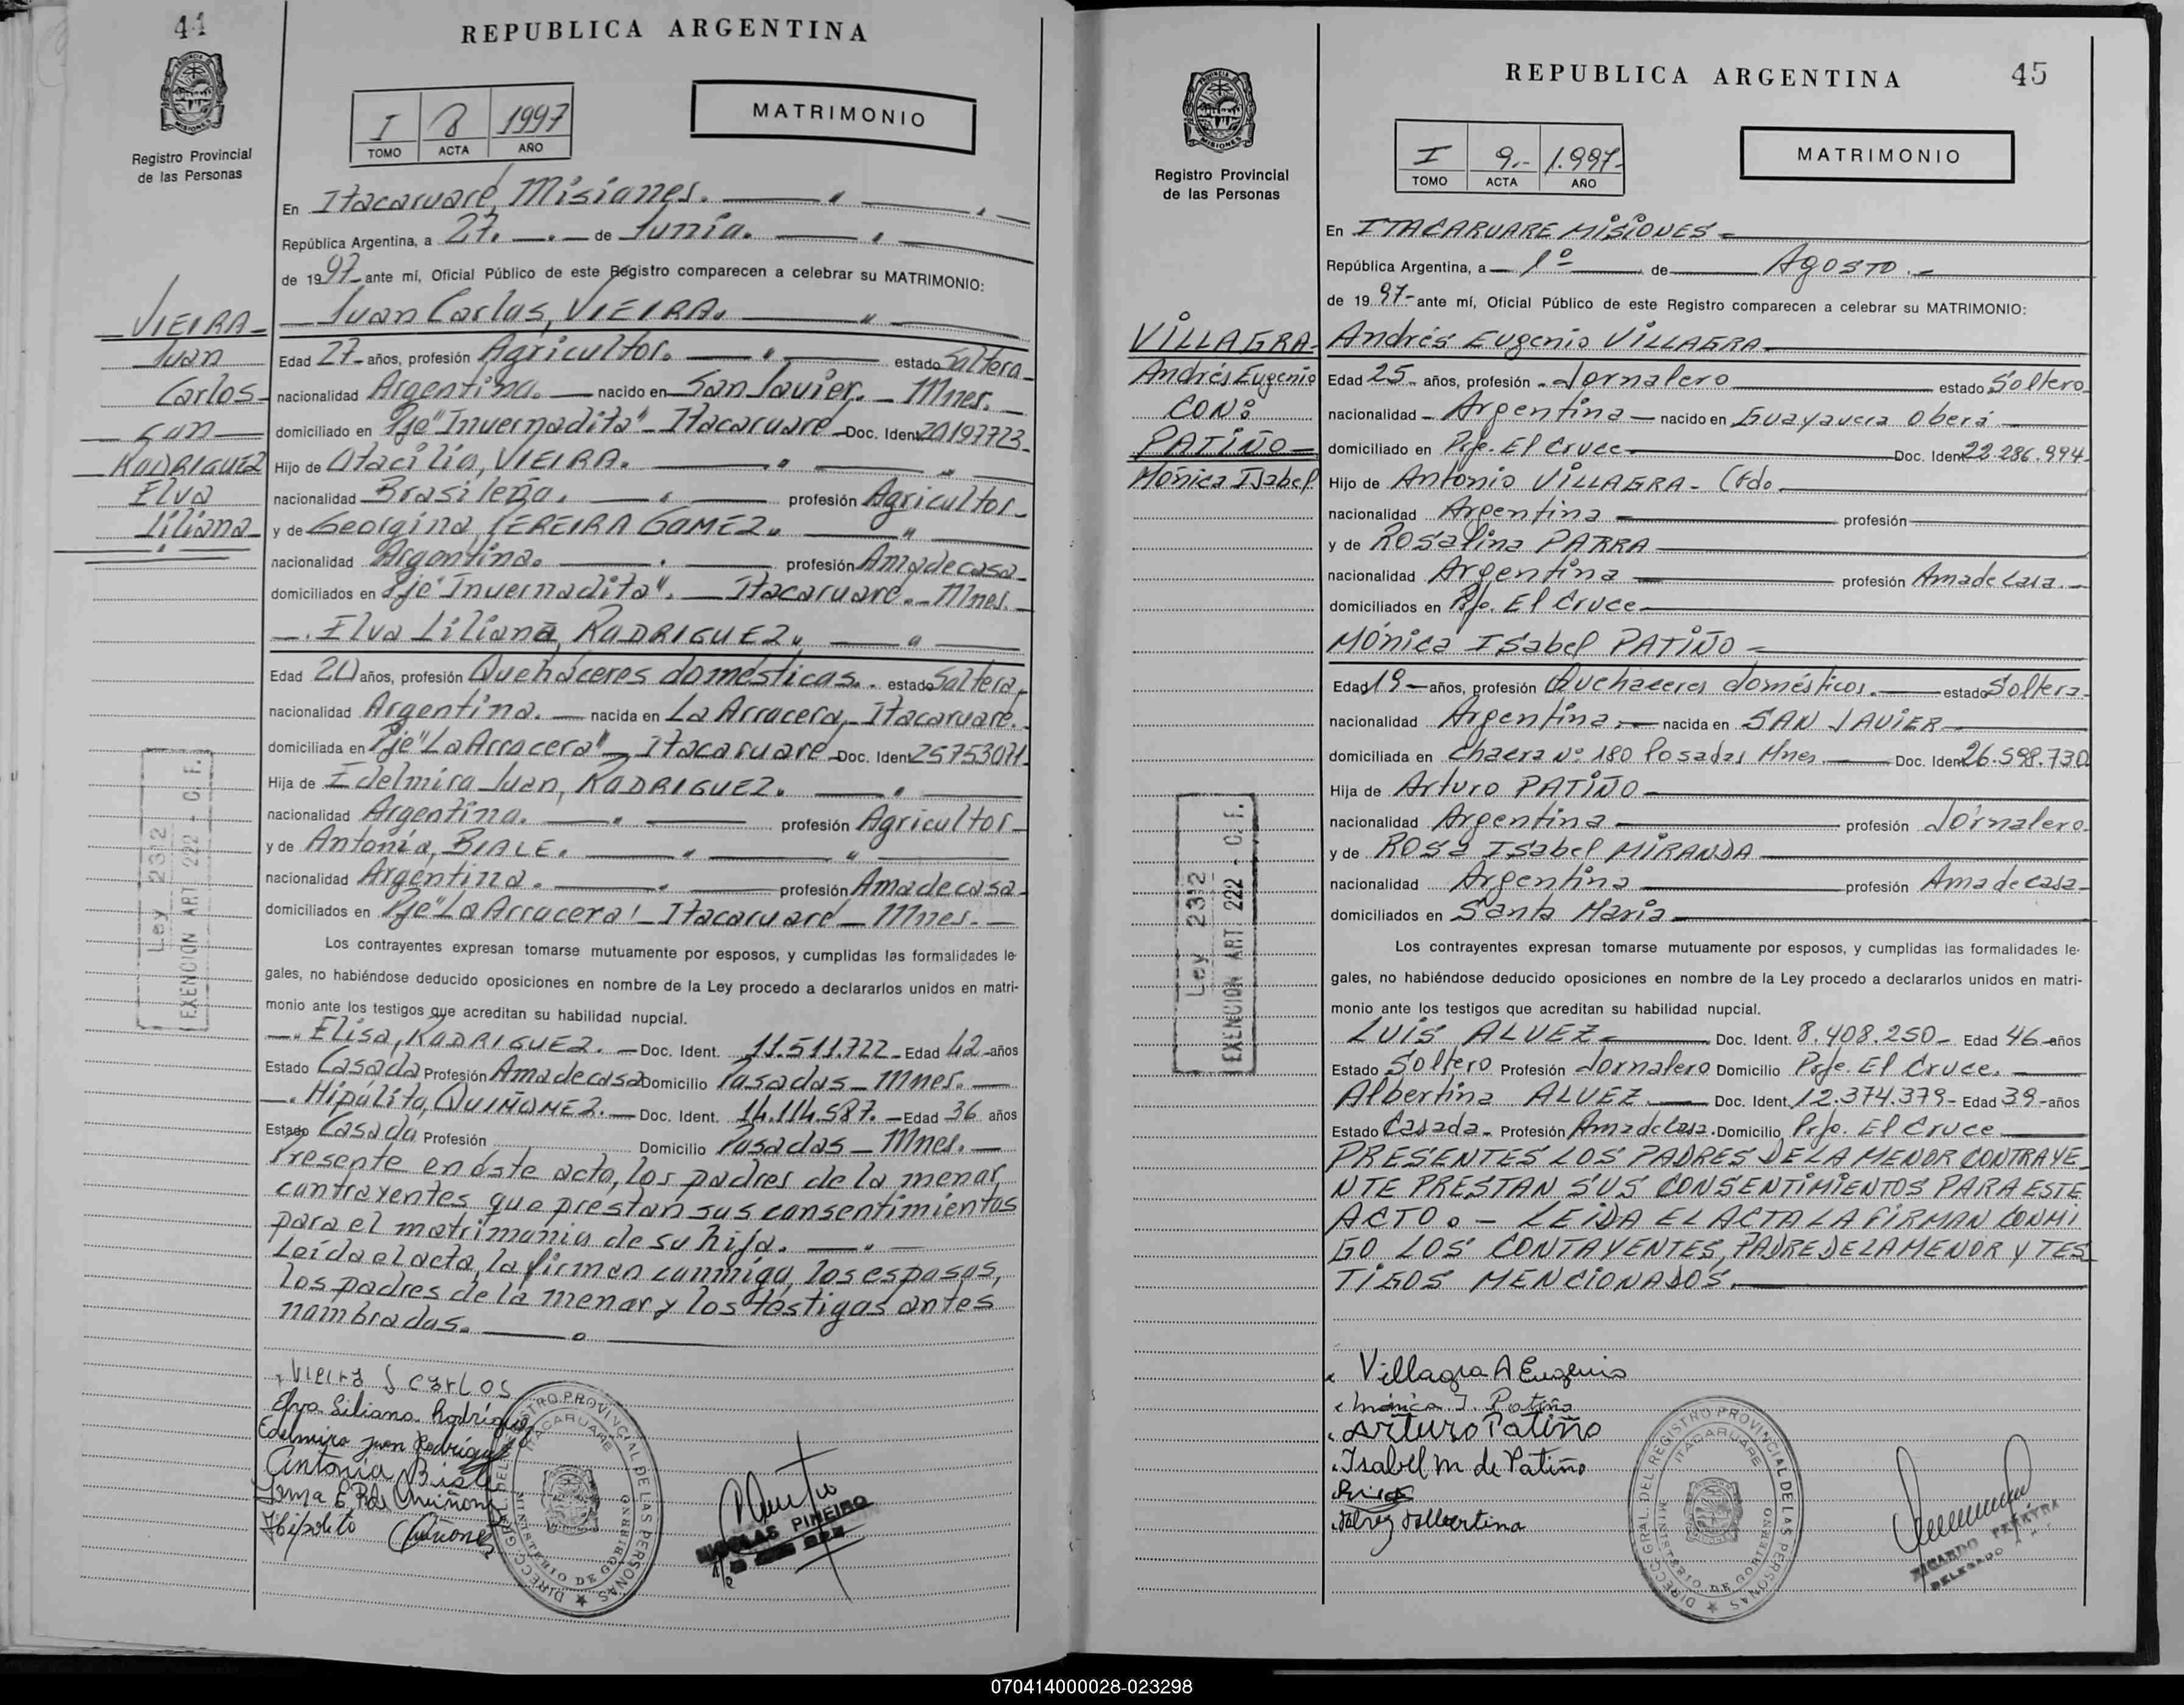 44
REPUBLICA ARGENTINA
PROVINCIA DE MISIONES
Registro Provincial
de las Personas
I 8 1997
TOMO ACTA AÑO
MATRIMONIO
En Itacaruaré, Misiones.
República Argentina, a 27. de Junio.
de 1997 ante mí, Oficial Público de este Registro comparecen a celebrar su MATRIMONIO:
VIEIRA
Juan
Carlos
con
RODRIGUEZ
Elva
Liliana
Juan Carlos, VIEIRA.
Edad 27 años, profesión Agricultor. estado Soltero
nacionalidad Argentina. nacido en San Javier. Mnes.
domiciliado en Pje "Invernadita" Itacaruaré Doc. Ident. 20197723
Hijo de Otacilio, VIEIRA.
nacionalidad Brasileña. profesión Agricultor
y de Georgina PEREIRA GOMEZ.
nacionalidad Argentina. profesión Ama de casa
domiciliados en Pje "Invernadita". Itacaruaré. Mnes.
Elva Liliana RODRIGUEZ.
Edad 20 años, profesión Quehaceres domésticos. estado Soltera.
nacionalidad Argentina. nacida en La Arrocera, Itacaruaré.
domiciliada en Pje "La Arrocera" Itacaruaré Doc. Ident. 25753071
Hija de Edelmiro Juan, RODRIGUEZ.
nacionalidad Argentina. profesión Agricultor
y de Antonia, BIALE.
nacionalidad Argentina. profesión Ama de casa
domiciliados en Pje "La Arrocera" Itacaruaré Mnes.
Los contrayentes expresan tomarse mutuamente por esposos, y cumplidas las formalidades le-
gales, no habiéndose deducido oposiciones en nombre de la Ley procedo a declararlos unidos en matri-
monio ante los testigos que acreditan su habilidad nupcial.
Elisa, RODRIGUEZ. Doc. Ident. 11.511.722 Edad 42 años
Estado Casada Profesión Ama de casa Domicilio Posadas Mnes.
Hipólito, QUIÑONEZ. Doc. Ident. 14.114.587. Edad 36 años
Estado Casado Profesión Domicilio Posadas Mnes.
Presente en este acto, los padres de la menor
contrayentes que prestan sus consentimientos
para el matrimonio de su hija.
Leída el acta, la firman conmigo, los esposos,
los padres de la menor y los testigos antes
nombrados.
Ley 2312
EXENCION ART 222 - C. F.
Vieira J carlos
Elva Liliana Rodríguez
Edelmiro Juan Rodríguez
Antonia Biale
Hipólito Quiñonez
DIRECC. GRAL. DEL REGISTRO PROVINCIAL DE LAS PERSONAS
ITACARUARE
MINISTERIO DE GOBIERNO
NICOLAS PIÑEIRO
45
REPUBLICA ARGENTINA
PROVINCIA DE MISIONES
Registro Provincial
de las Personas
I 9.- 1.997-
TOMO ACTA AÑO
MATRIMONIO
En ITACARUARE MISIONES
República Argentina, a 1º de Agosto.-
de 1997- ante mí, Oficial Público de este Registro comparecen a celebrar su MATRIMONIO:
VILLAGRA
Andrés Eugenio
CON:
PATIÑO
Mónica Isabel
Andrés Eugenio VILLAGRA
Edad 25 años, profesión Jornalero estado Soltero
nacionalidad Argentina nacido en Guayavera Oberá
domiciliado en Pje. El Cruce Doc. Ident. 22.286.994
Hijo de Antonio VILLAGRA - (fdo.
nacionalidad Argentina profesión
y de Rosalina PARRA
nacionalidad Argentina profesión Ama de Casa.-
domiciliados en Pje. El Cruce
Mónica Isabel PATIÑO
Edad 19 años, profesión Quehaceres domésticos. estado Soltera
nacionalidad Argentina nacida en SAN JAVIER
domiciliada en Chacra Nº 180 Posadas Mnes. Doc. Ident. 26.598.730
Hija de Arturo PATIÑO
nacionalidad Argentina profesión Jornalero
y de Rosa Isabel MIRANDA
nacionalidad Argentina profesión Ama de casa
domiciliados en Santa María
Los contrayentes expresan tomarse mutuamente por esposos, y cumplidas las formalidades le-
gales, no habiéndose deducido oposiciones en nombre de la Ley procedo a declararlos unidos en matri-
monio ante los testigos que acreditan su habilidad nupcial.
LUIS ALVEZ Doc. Ident. 8.408.250 Edad 46 años
Estado Soltero Profesión Jornalero Domicilio Pje. El Cruce.
Albertina ALVEZ Doc. Ident. 12.374.379- Edad 39 años
Estado Casada Profesión Ama de Casa. Domicilio Pje. El Cruce
PRESENTES LOS PADRES DE LA MENOR CONTRAYE
NTE PRESTAN SUS CONSENTIMIENTOS PARA ESTE
ACTO.- LEIDA EL ACTA LA FIRMAN CONMI
GO LOS CONTAYENTES, PADRE DE LA MENOR Y TES
TIGOS MENCIONADOS.
Ley 2312
EXENCION ART 222 - C. F.
Villagra A Eugenio
Mónica I. Patiño
Arturo Patiño
Isabel M de Patiño
Alvez Albertina
DIRECC. GRAL. DEL REGISTRO PROVINCIAL DE LAS PERSONAS
ITACARUARE
MINISTERIO DE GOBIERNO
RICARDO PEREYRA
DELEGADO
070414000028-023298